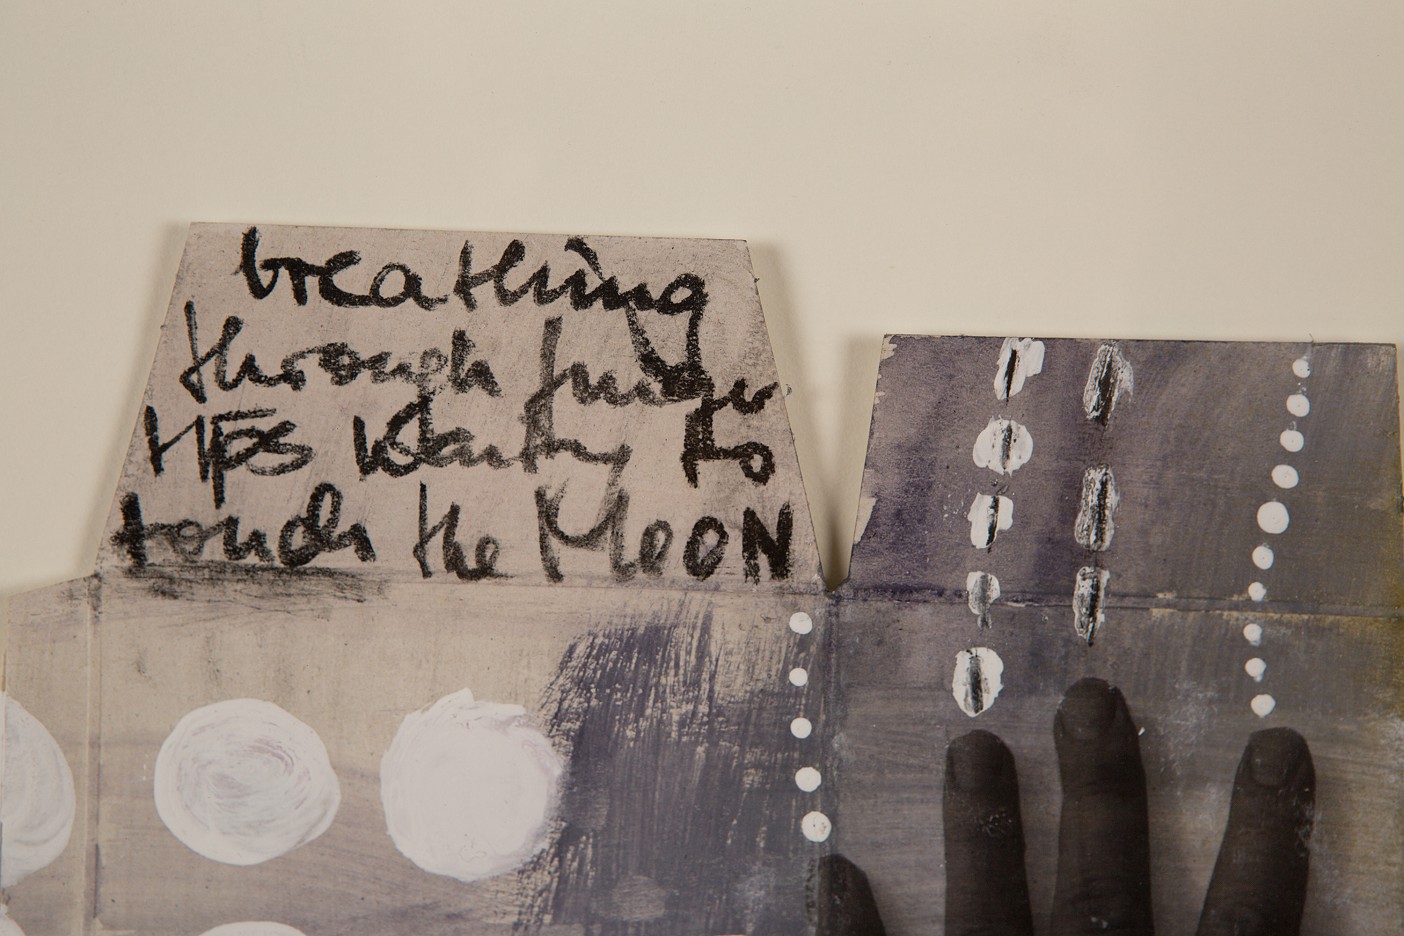 breathing
through finger
tips wanting to
touch the MooN